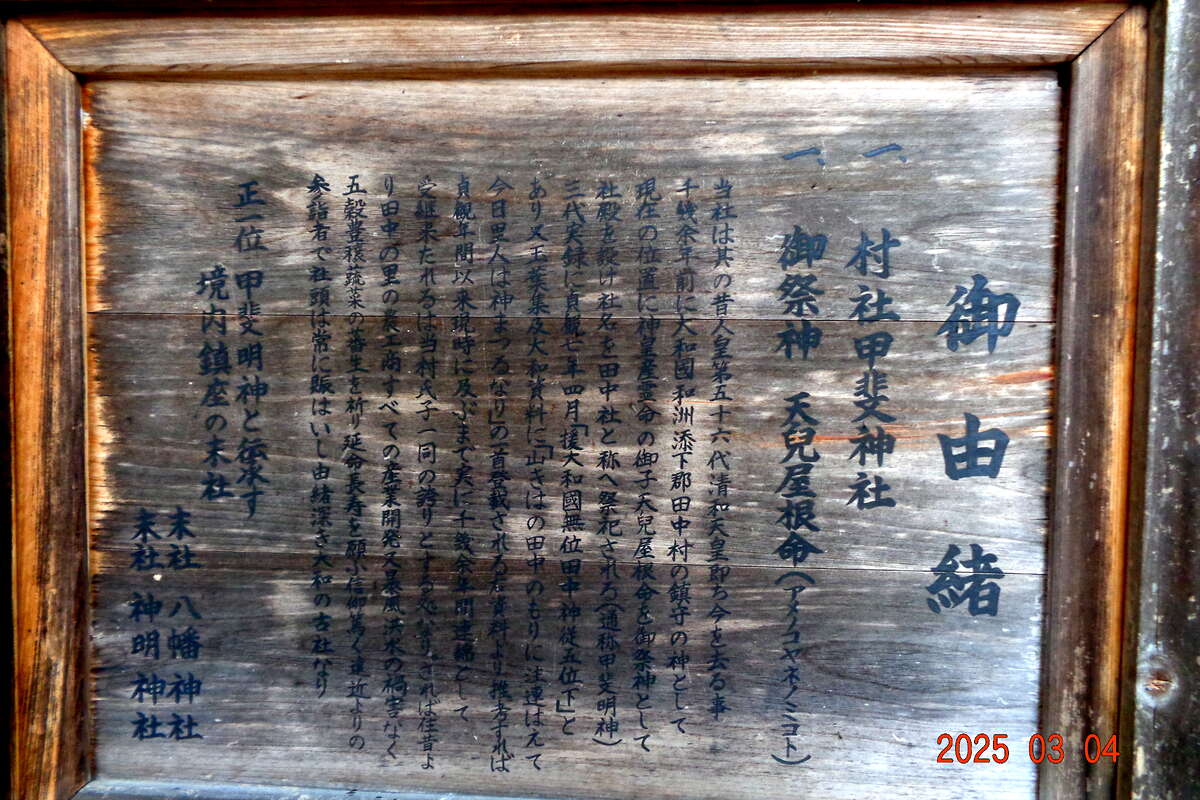 御由緒
一、村社甲斐神社
一、御祭神 天兒屋根命(アメノコヤネノミコト)
当社は其の昔人皇第五十六代清和天皇即ち今を去る事
千幾余年前に大和國和洲添下郡田中村の鎮守の神として
現在の位置に神皇産霊命の御子天兒屋根命を御祭神として
社殿を設け社名を田中社と称へ祭祀される(通称甲斐明神)
三代実録に貞観七年四月「援大和國無位田中神従五位下」と
あり又王葉集及大和資料に「山きはの田中のもりに注連はえて
今日里人は神まつるなり」の首登載される右資料より推考すれば
貞観年間以来現時に及ぶまで実に千幾余年間連綿として
受継来たれるは当村氏子一同の誇りとする処なりされば往昔よ
り田中の里の農工商すべての産業開発又暴風洪水の禍害なく
五穀豊穣蔬菜の蕃生を祈り延命長寿を願ふ信仰篤く遠近よりの
参詣者で社頭は常に賑はいし由緒深き大和の古社なり
正一位 甲斐明神と伝承す
境内鎮座の末社
末社 八幡神社
末社 神明神社
2025 03 04